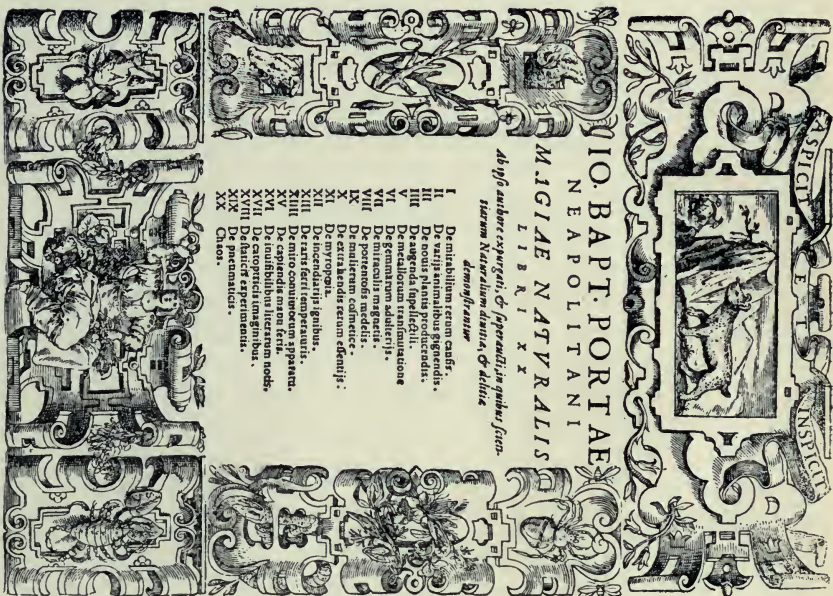 ASPICIT ET INSPICIT
IO. BAPT. PORTAE
NEAPOLITANI
MAGIAE NATVRALIS
LIBRI XX
Ab ipso authore expurgati, & superaucti, in quibus scien-
tiarum Naturalium diuitiæ, & delitiæ
demonstrantur
I De mirabilium rerum causis.
II De varijs animalibus gignendis.
III De nouis plantis producendis.
IIII De augenda supellectili.
V De metallorum transmutatione
VI De gemmarum adulterijs.
VII De miraculis magnetis.
VIII De portentosis medelis
IX De mulierum cosmetice.
X De extrahendis rerum essentijs.
XI De myropœia
XII De incendiarijs ignibus.
XIII De raris ferri temperaturis.
XIIII De miro conuiuiorum apparatu.
XV De capiendis manu feris.
XVI De inuisibilibus literarum notis.
XVII De catoptricis imaginibus.
XVIII De staticis experimentis.
XIX De pneumaticis.
XX Chaos.